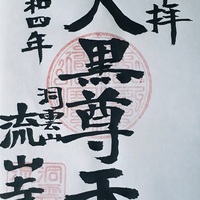 拝
大黒尊天
和四年
洞雲山
流山寺